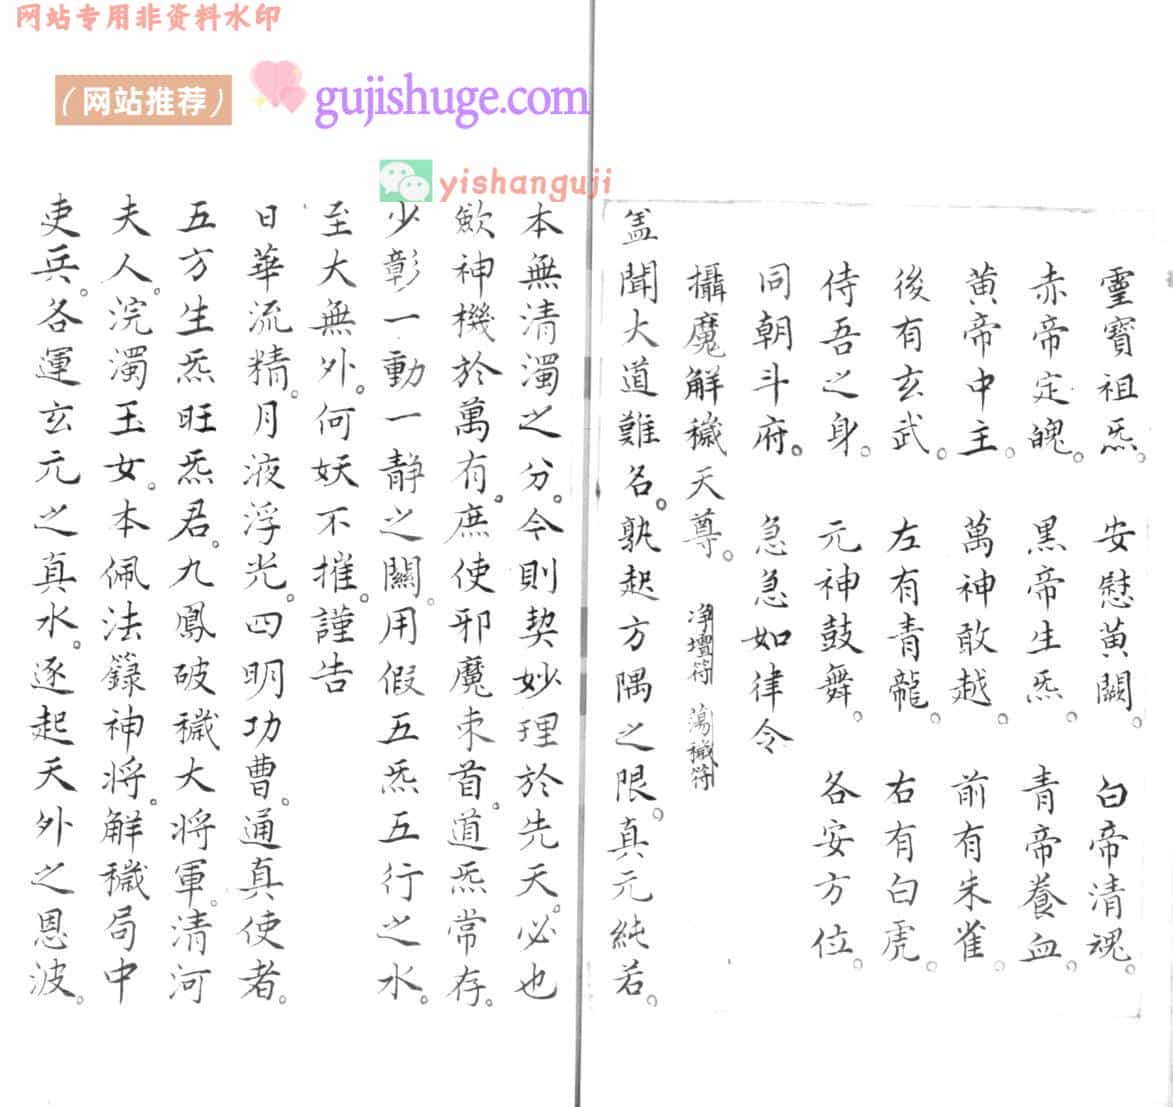 网站专用非资料水印
（网站推荐）
gujishuge.com
yishanguji
靈寶祖炁。安慰黃闕。白帝清魂。
赤帝定魄。黑帝生炁。青帝養血。
黃帝中主。萬神敢越。前有朱雀。
後有玄武。左有青龍。右有白虎。
侍吾之身。元神鼓舞。各安方位。
同朝斗府。急急如律令
攝魔解穢天尊。淨壇符 蕩穢符
盖聞大道難名。孰起方隅之限。真元純若。
本無清濁之分。今則契妙理於先天。必也
歛神機於萬有。庶使邪魔束首。道炁常存。
少彰一動一靜之關。用假五炁五行之水。
至大無外。何妖不摧。謹告
日華流精。月液浮光。四明功曹。通真使者。
五方生炁旺炁君。九鳳破穢大將軍。清河
夫人。浣濁玉女。本佩法籙神將。解穢局中
吏兵。各運玄元之真水。逐起天外之恩波。